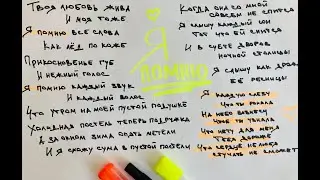 Твоя любовь жива
И моя тоже
Я помню все слова
Как лёд по коже
Прикосновенье губ
И нежный голос
Я помню каждый звук
И каждый волос
Что утром на моей пустой подушке
Холодная постель теперь подружка
А за окном зима опять метели
И я скажу сума в пустой постели
Я
помню
Когда она со мной
совсем не спится
Я слышу каждый
Тот что ей снится
И в суете дворов
Ночной столицы
Я слышу как дрожат
её ресницы
Я каждую слезу
Что ты
На небо
Чтоб ты
Что нету для меня
Тебя дороже
Что сердце не любя
стучать не сможет